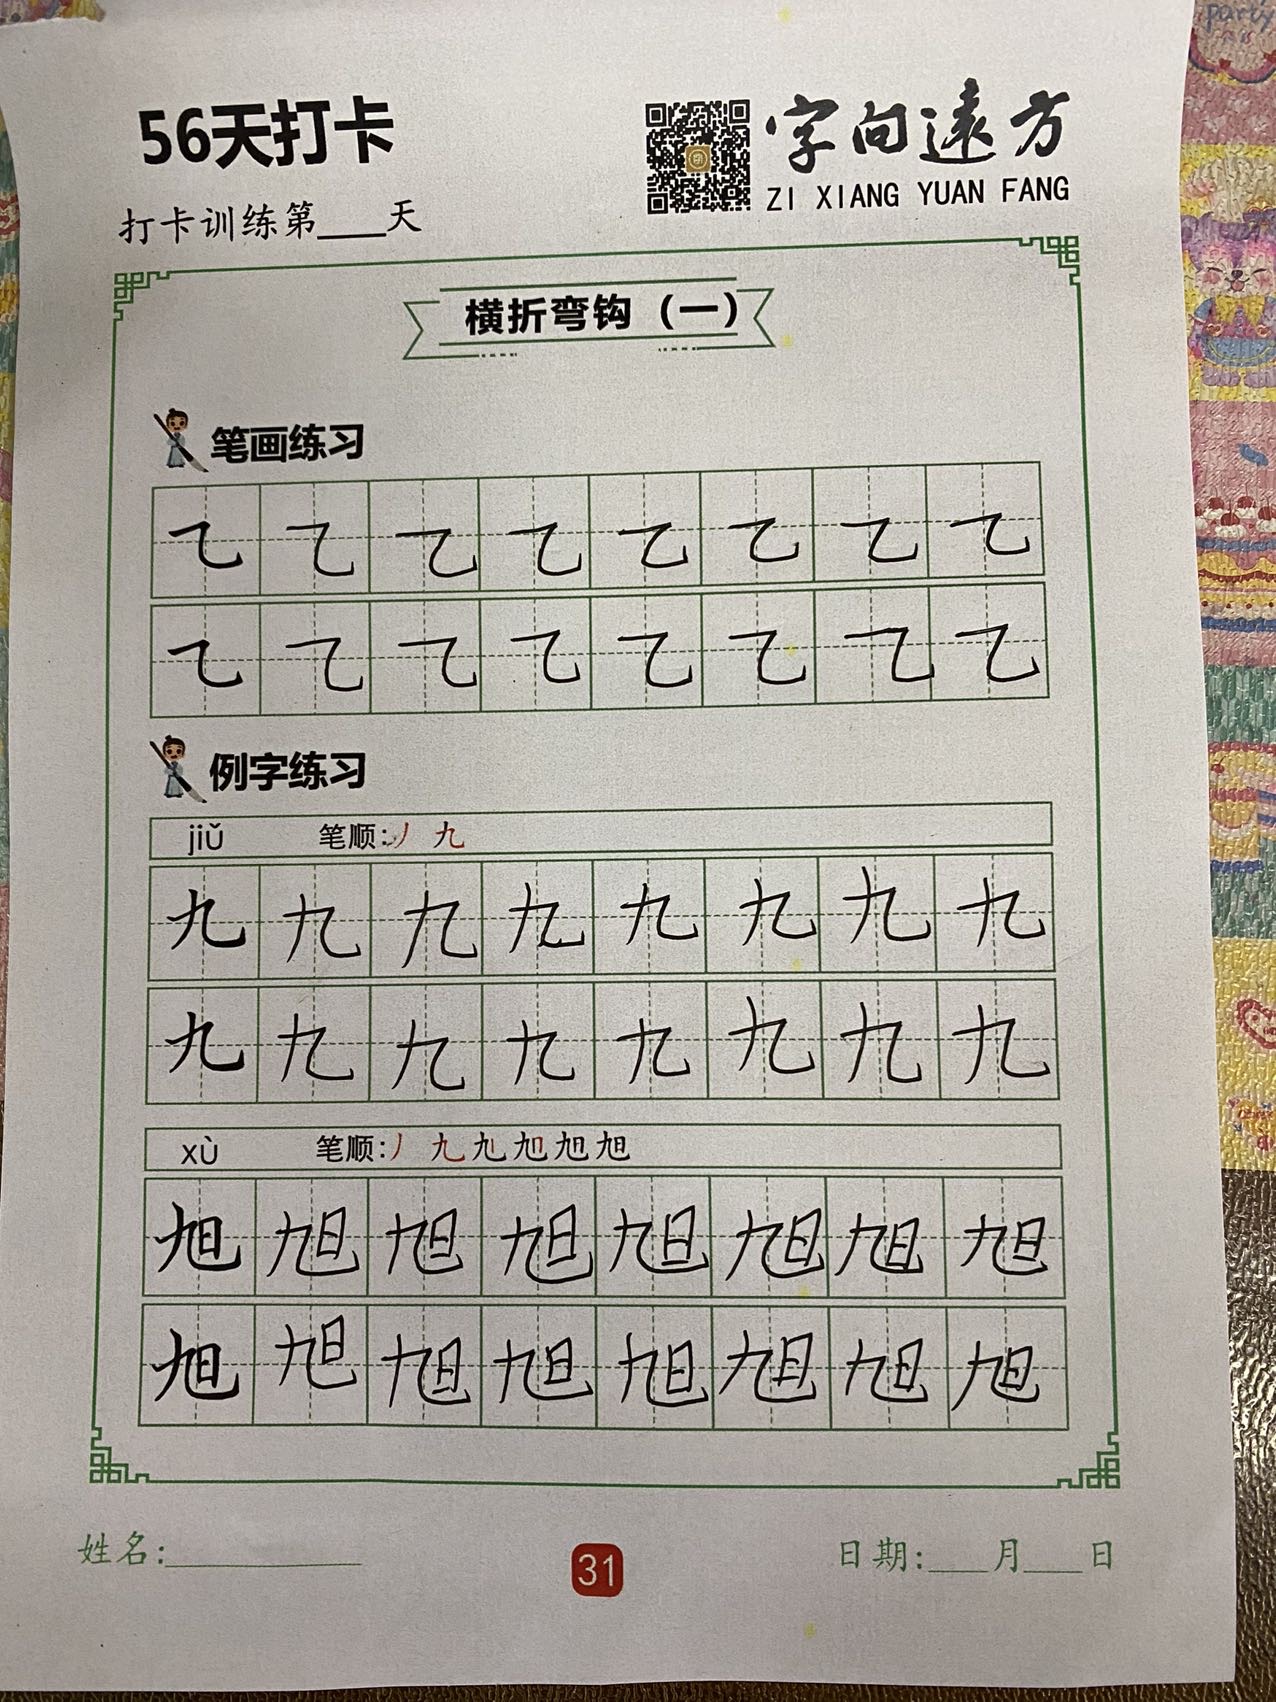 56天打卡
字向遠方
ZI XIANG YUAN FANG
打卡训练第____天
横折弯钩（一）
笔画练习
乙 乙 乙 乙 乙 乙 乙 乙
乙 乙 乙 乙 乙 乙 乙 乙
例字练习
jiǔ 笔顺:丿 九
九 九 九 九 九 九 九 九
九 九 九 九 九 九 九 九
xù 笔顺:丿 九 九 旭 旭 旭
旭 旭 旭 旭 旭 旭 旭 旭
旭 旭 旭 旭 旭 旭 旭 旭
姓名:__________
31
日期:___月___日